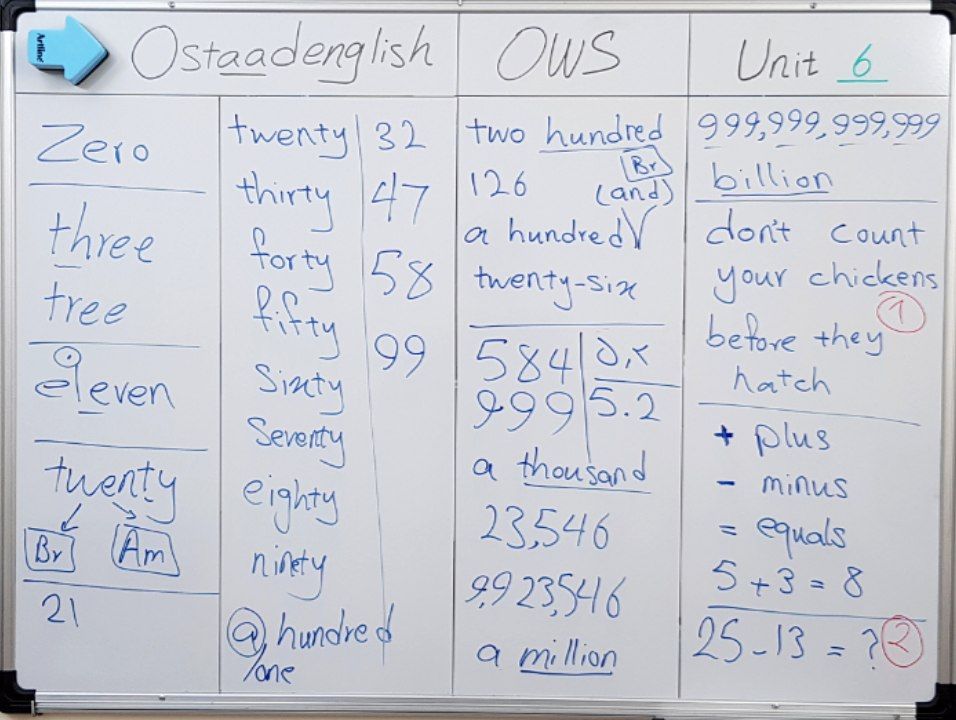 Artline
Ostaadenglish
OWS
Unit 6
Zero
three
tree
eleven
twenty
Br Am
21
twenty 32
thirty 47
forty 58
fifty
99
Sixty
Seventy
eighty
ninety
a hundred
/one
two hundred
126 Br (and)
a hundred√
twenty-six
584
999 5.2
a thousand
23,546
9,923,546
a million
999,999,999,999
billion
don't count
your chickens
1
before they
hatch
+ plus
- minus
= equals
5 + 3 = 8
25 - 13 = ? 2